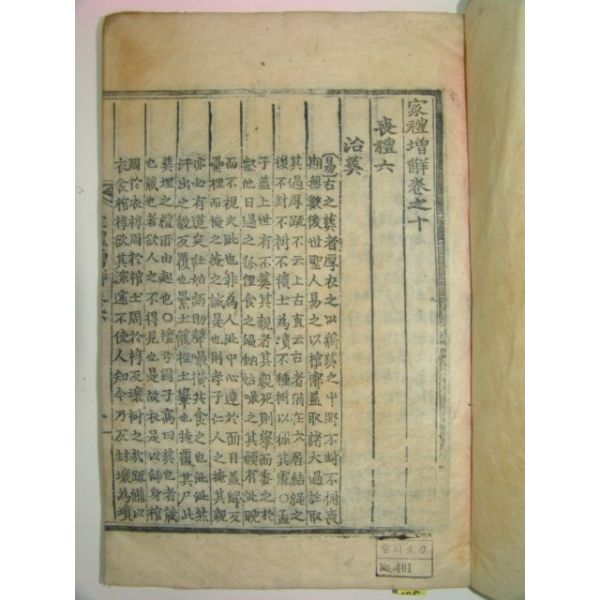 家禮增解卷之十
喪禮六
治葬
易古之葬者厚衣之以薪葬之中野不封不樹喪
期無數後世聖人易之以棺槨蓋取諸大過註取
其過厚疏不云上古直云古者
後不封不樹不種樹以標其處○孟
子蓋上世有不葬其親者其親死則舉而委之於
壑他日過之狐狸食之蠅蚋姑嘬之其顙有泚睨
而不視夫泚也非爲人泚中心達於面目蓋歸反
虆梩而掩之掩之誠是也則孝子仁人之掩其親
亦必有道矣註姑語助聲嘬攢共食之也泚泚然
汗出之貌反覆也虆土籠梩土轝也掩覆其尸此
葬埋之禮所由起也○檀弓國子高曰葬也者藏
也藏也者欲人之不得見也是故衣足以飾身棺
周於衣槨周於棺土周於槨反壤樹之哉疏
衣衾棺槨欲其深邃不使人知今乃反封壤爲墳
No. 401